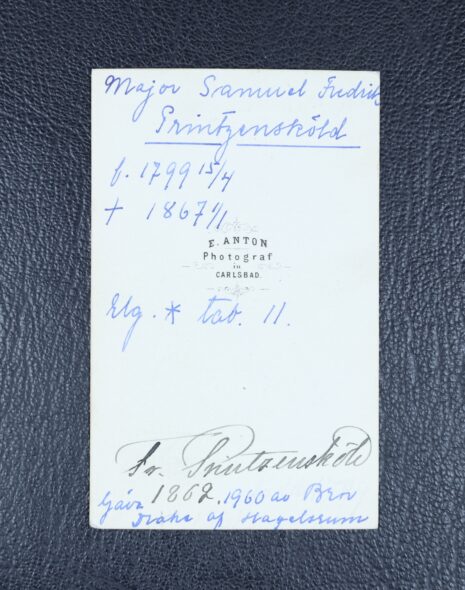 Major Samuel Fredrik
Printzensköld
f. 1799 15/4
† 1867 1/1
E. ANTON
Photograf
in
CARLSBAD.
Elg. * tab. 11.
Fr. Printzensköld
1862.
Gåva 1960 av Bror
Drake af Hagelsrum